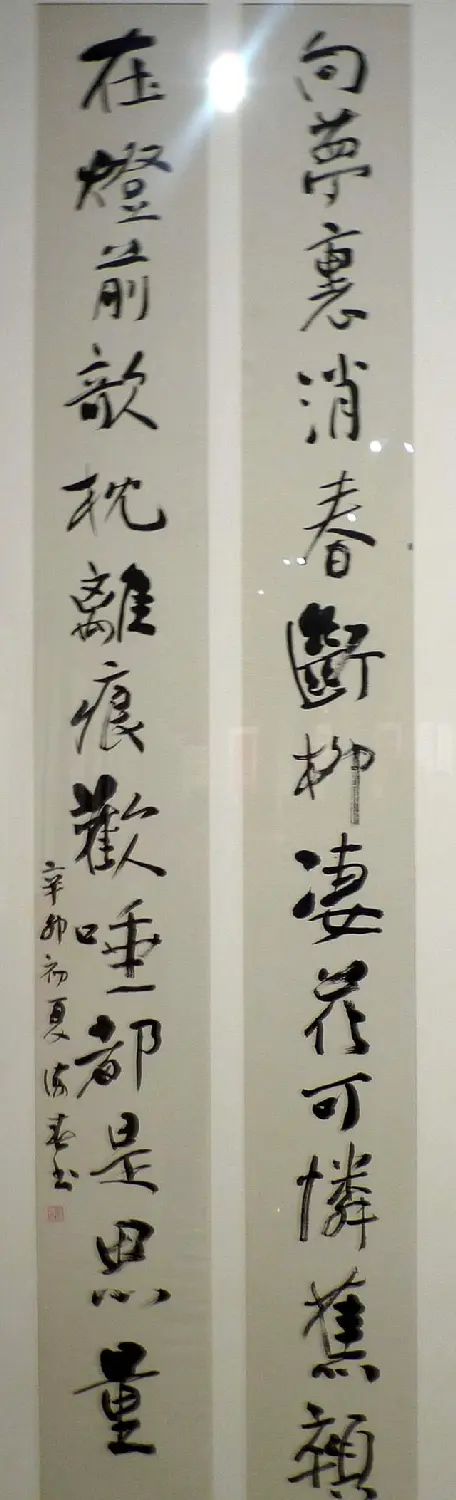 向夢裏消春斷柳凄花可憐蕉顇
在燈前欹枕離痕歡唾都是思量
辛卯初夏